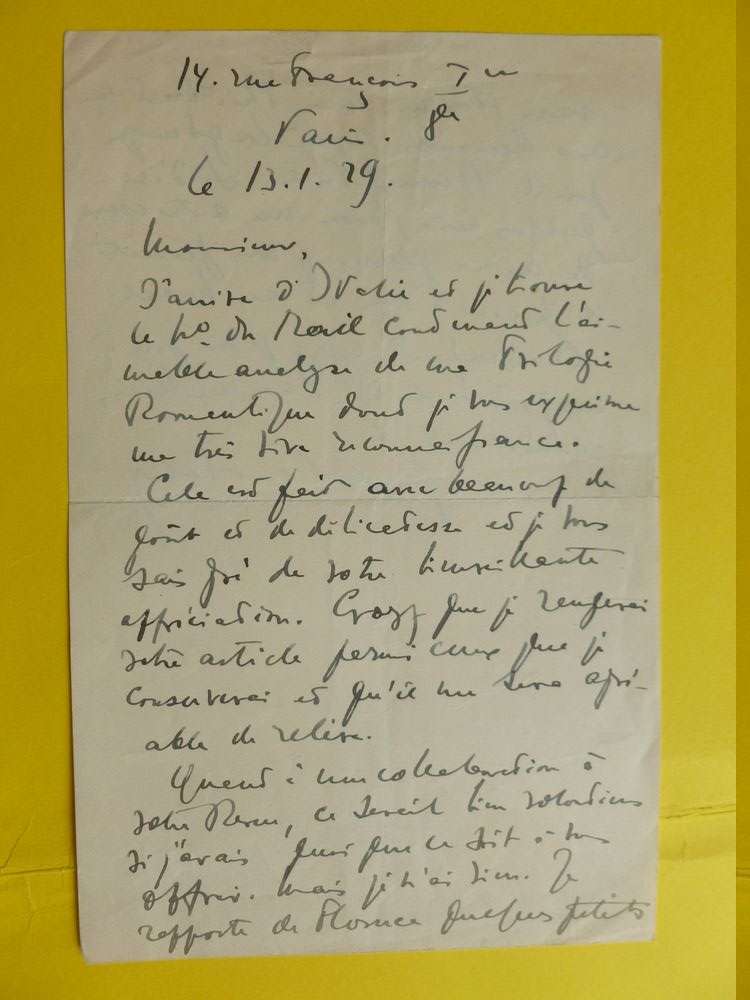 14. rue François Ier
Paris.
le 13.1.29.
Monsieur,
J'arrive d'Italie et je trouve
le No. du Mail contenant l'ai-
mable analyse de ma Trilogie
Romantique dont je vous exprime
ma très vive reconnaissance.
Cela est fait avec beaucoup de
goût et de délicatesse et je vous
sais gré de votre bienveillante
appréciation. Croyez que je rangerai
votre article parmi ceux que je
conserverai et qu'il me sera agré-
able de relire.
Quant à une collaboration à
votre Revue, ce serait bien volontiers
si j'avais quoi que ce soit à vous
offrir. Mais je n'ai rien. Je
rapporte de Florence quelques petits